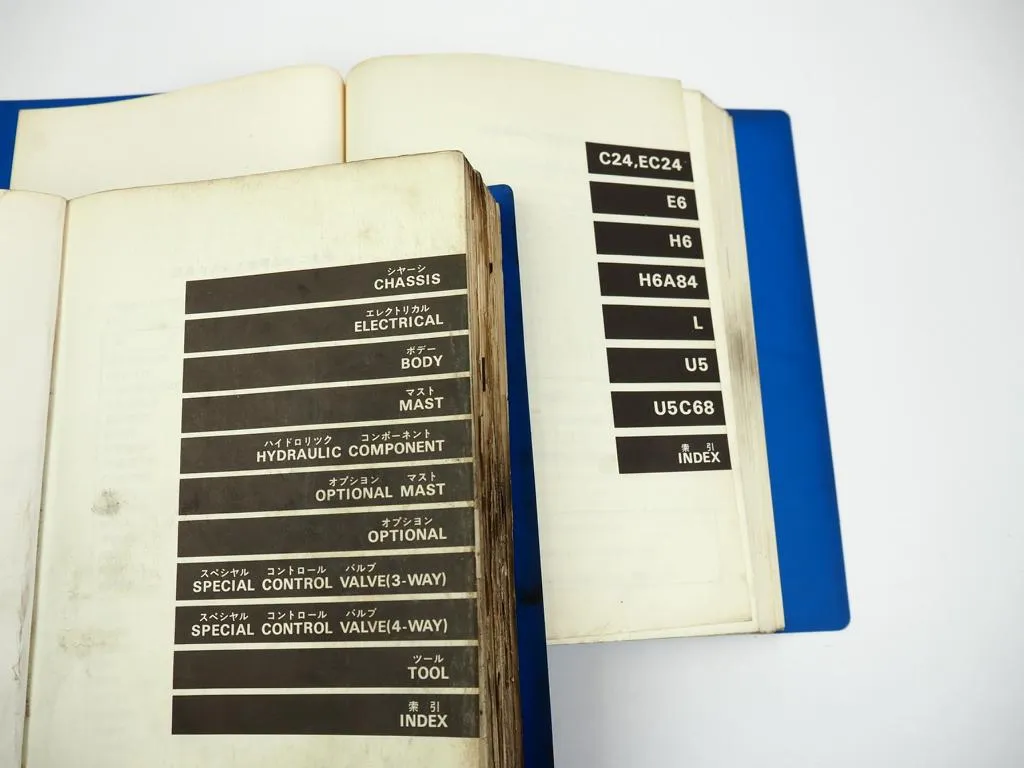 シャーシ
CHASSIS
エレクトリカル
ELECTRICAL
ボデー
BODY
マスト
MAST
ハイドロリック コンポーネント
HYDRAULIC COMPONENT
オプション マスト
OPTIONAL MAST
オプション
OPTIONAL
スペシャル コントロール バルブ
SPECIAL CONTROL VALVE(3-WAY)
スペシャル コントロール バルブ
SPECIAL CONTROL VALVE(4-WAY)
ツール
TOOL
索引
INDEX
C24,EC24
E6
H6
H6A84
L
U5
U5C68
索引
INDEX